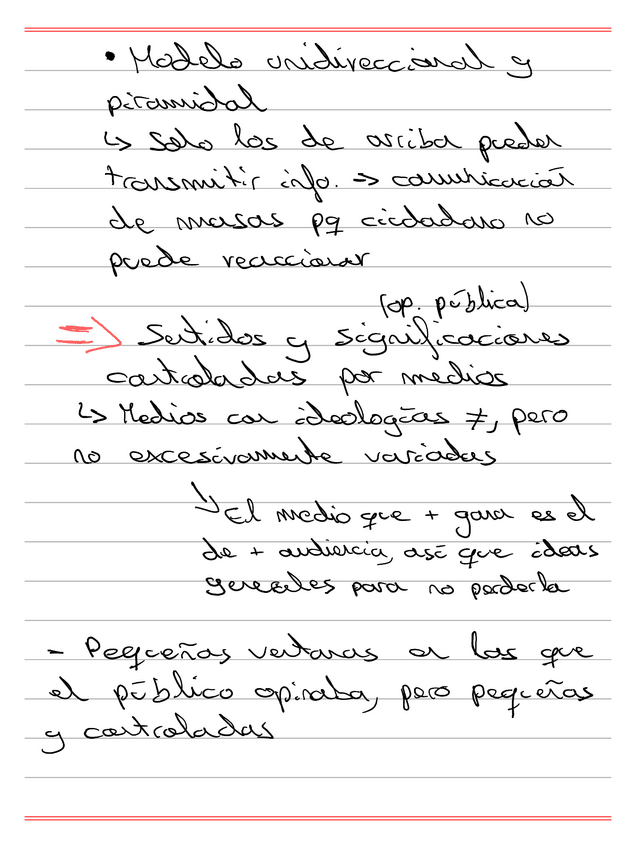 • Modelo unidireccional y
piramidal
↳ Solo los de arriba pueden
transmitir info. => comunicación
de masas pq ciudadano no
puede reaccionar
(op. pública)
=> Sentidos y significaciones
controladas por medios
↳ Medios con ideologías ≠, pero
no excesivamente variadas
↳ El medio que + gana es el
de + audiencia, así que ideas
generales para no perderla
- Pequeñas ventanas en las que
el público opinaba, pero pequeñas
y controladas